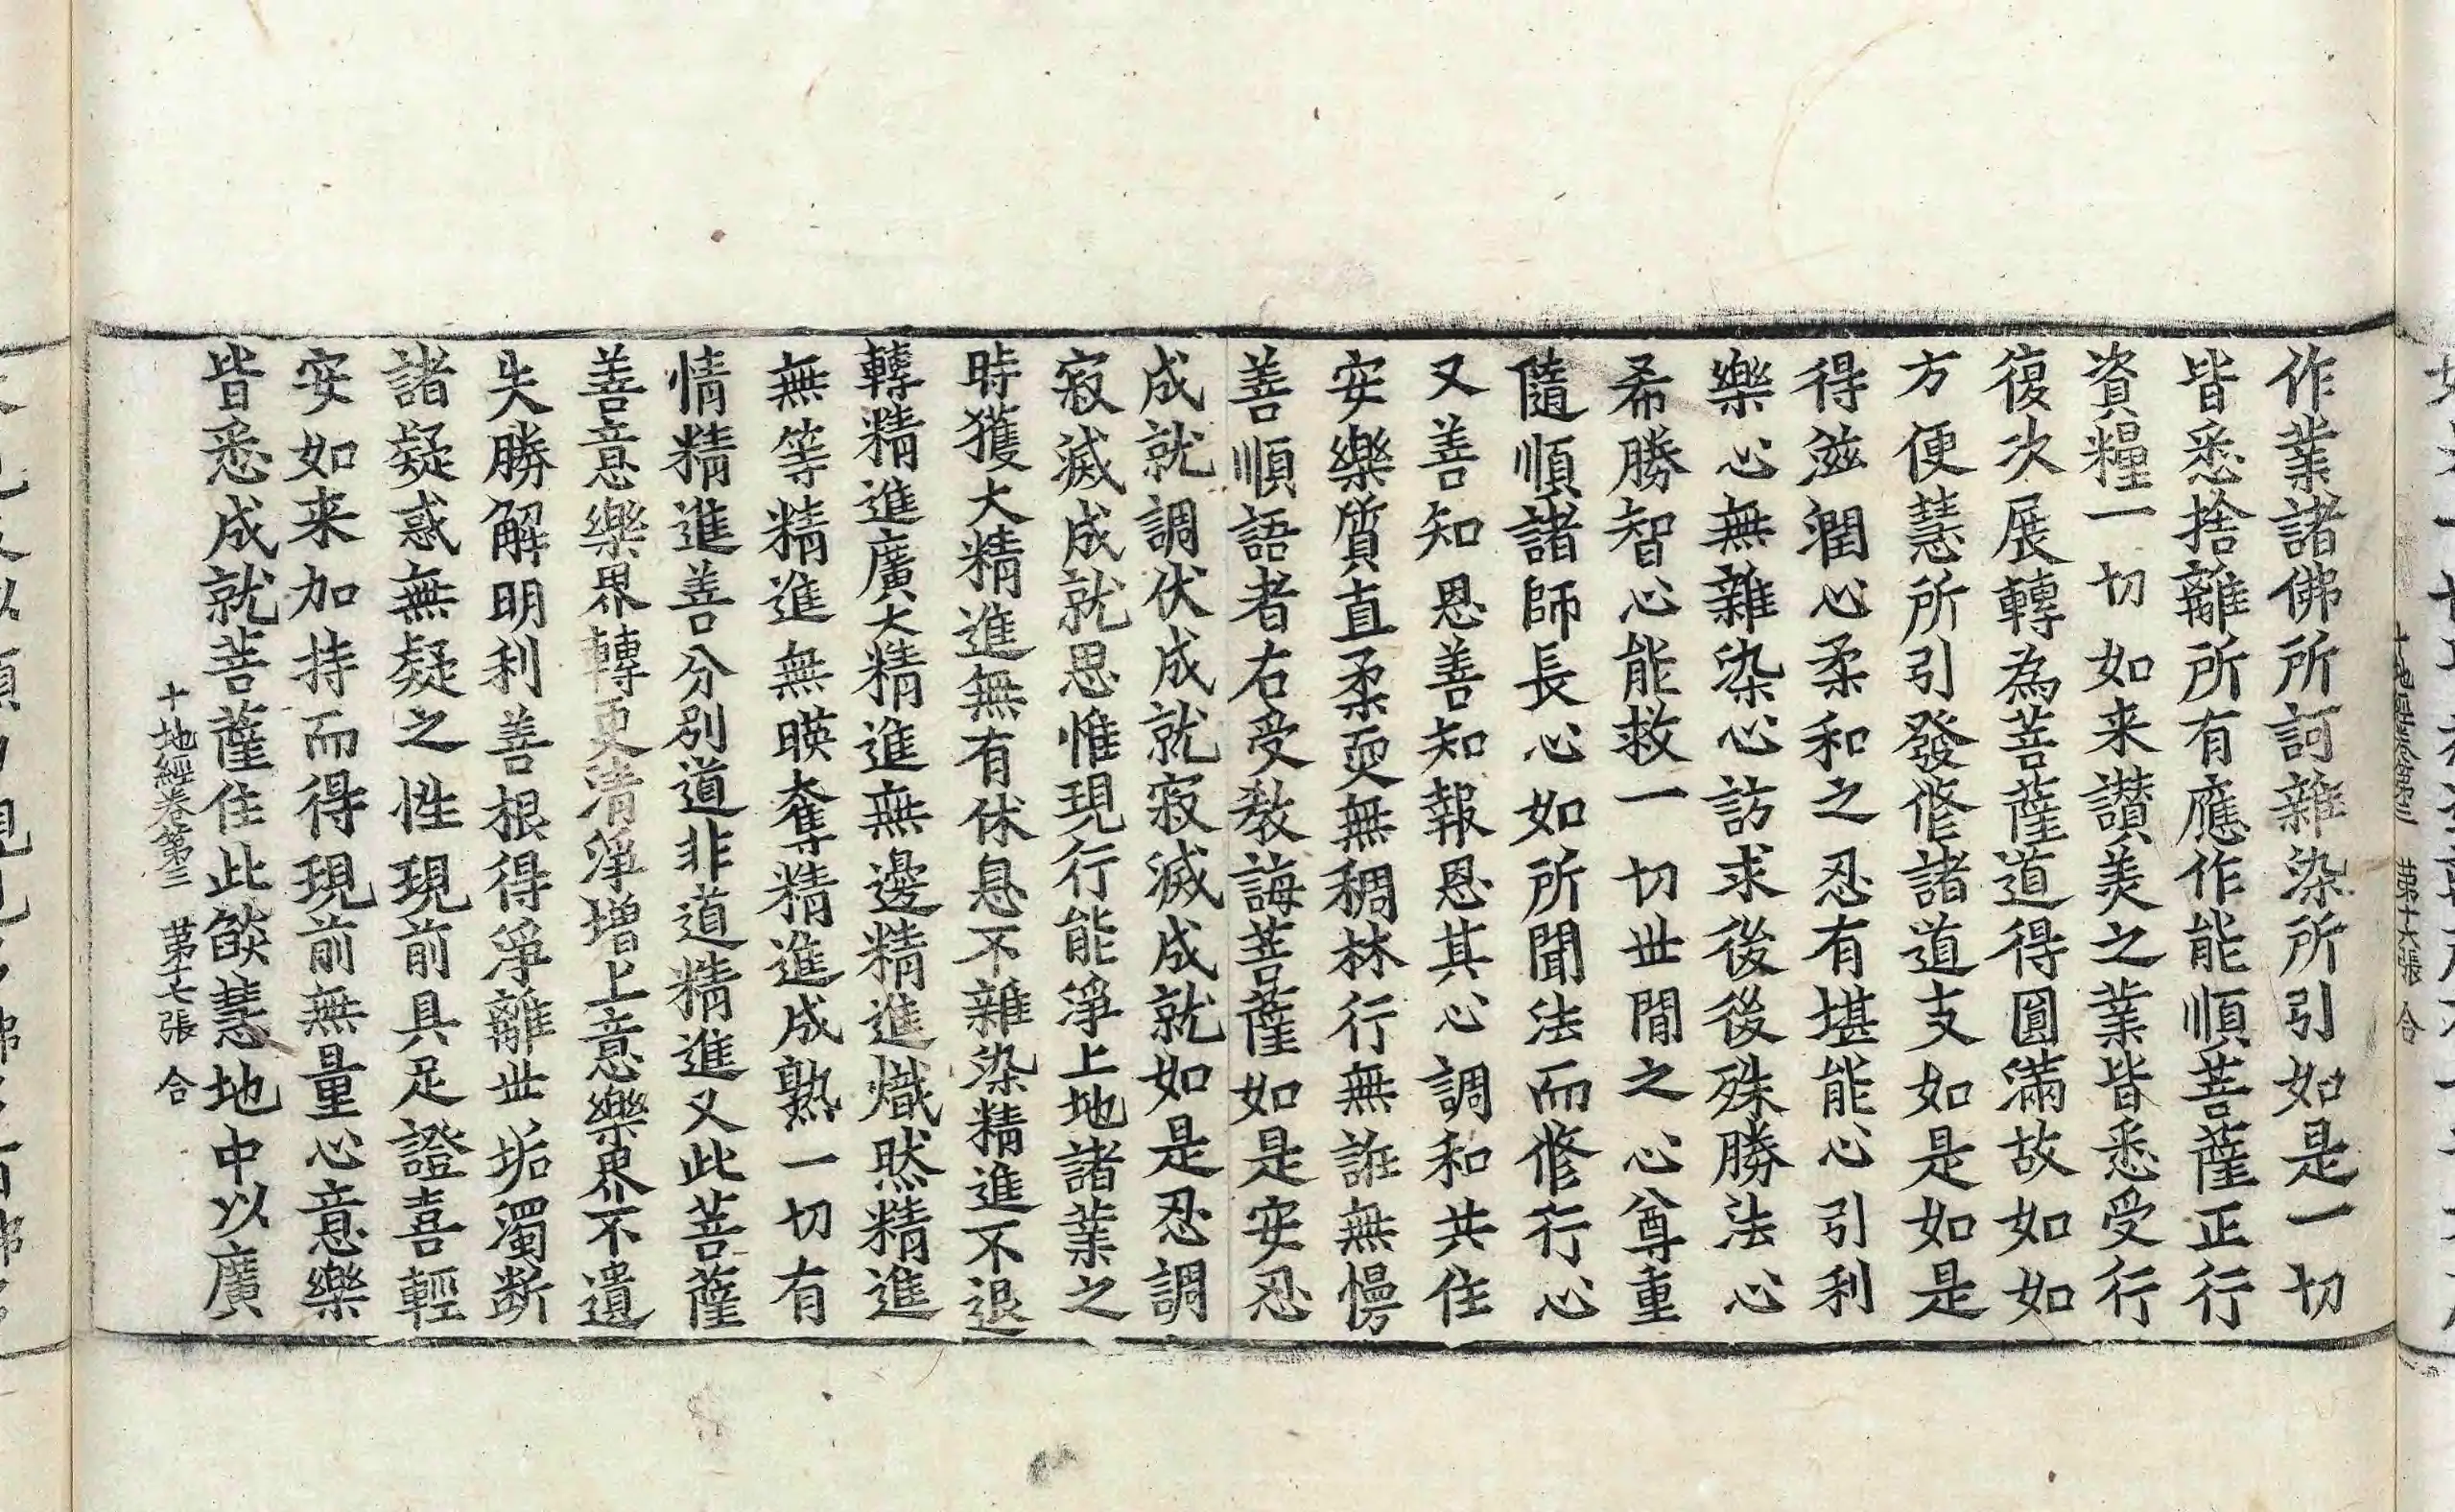 作業諸佛所訶雜染所引如是一切
皆悉捨離所有應作能順菩薩正行
資糧一切如来讚美之業皆悉受行
復次展轉為菩薩道得圓滿故如如
方便慧所引發修諸道支如是如是
得滋潤心柔和之忍有堪能心引利
樂心無雜染心訪求後後殊勝法心
希勝智心能救一切世間之心尊重
隨順諸師長心如所聞法而修行心
又善知恩善知報恩其心調和共住
安樂質直柔耎無稠林行無誑無慢
善順語者右受教誨菩薩如是安忍
成就調伏成就寂滅成就如是忍調
寂滅成就思惟現行能淨上地諸業之
時獲大精進無有休息不雜染精進不退
轉精進廣大精進無邊精進熾然精進
無等精進無暎奪精進成熟一切有
情精進善分別道非道精進又此菩薩
善意樂界轉更清淨增上意樂界不遺
失勝解明利善根得淨離世垢濁斷
諸疑惑無疑之性現前具足證喜輕
安如来加持而得現前無量心意樂
皆悉成就菩薩住此焰慧地中以廣
十地經卷第三 第十七張 合